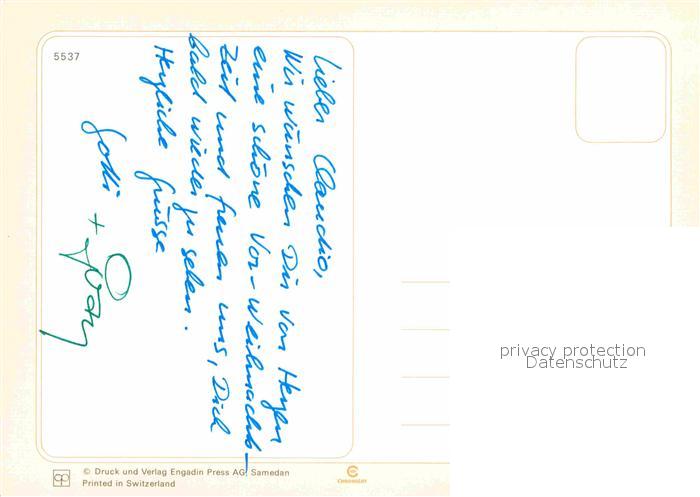 5537
Lieber Claudio,
Wir wünschen Dir von Herzen
eine schöne Vor-Weihnachts-
zeit und freuen uns, Dich
bald wieder zu sehen.
Herzliche Grüsse
+
privacy protection
Datenschutz
© Druck und Verlag Engadin Press AG, Samedan
Printed in Switzerland